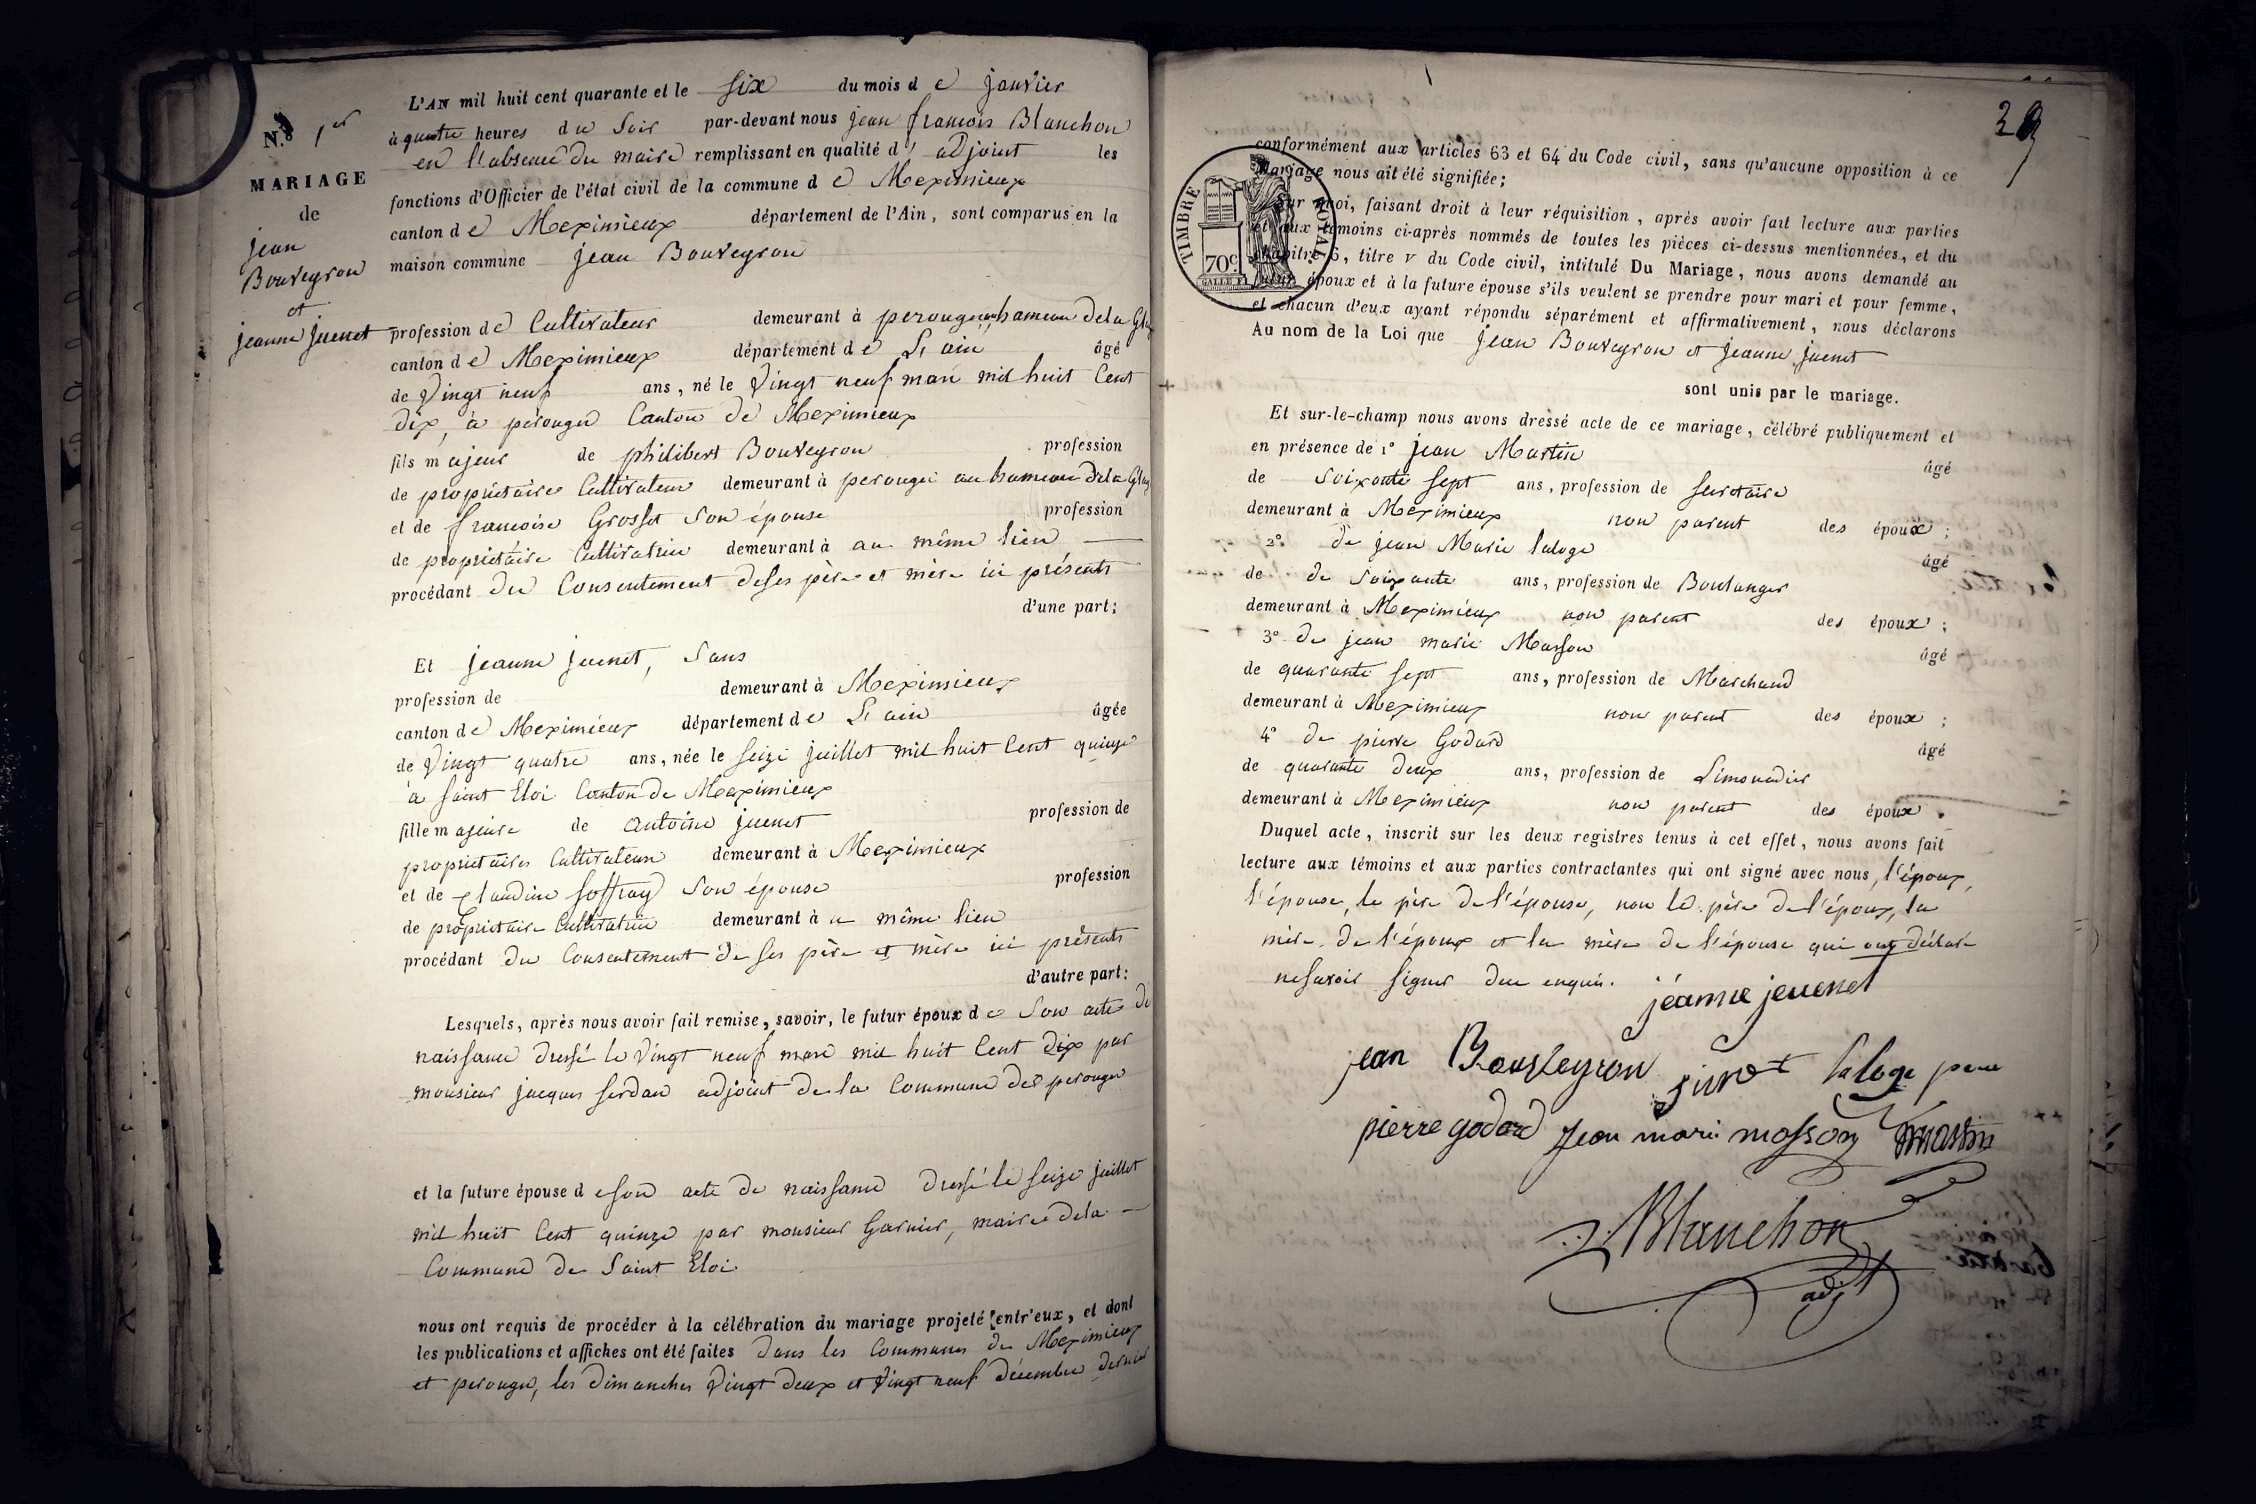 N.o 1er
MARIAGE
de
jean
Bouveyron
et
jeanne juenet
L'AN mil huit cent quarante et le six du mois d e janvier
à quatre heures du soir par-devant nous jean francois Blanchon
en l'absence du maire remplissant en qualité d' adjoint les
fonctions d'Officier de l'état civil de la commune d e Meximieux
canton d e Meximieux département de l'Ain, sont comparus en la
maison commune jean Bouveyron
profession d e Cultivateur demeurant à perouges hameau de la Glay
canton d e Meximieux département d e L'ain âgé
de vingt neuf ans, né le vingt neuf mars mil huit Cent
dix, à pérouges Canton de Meximieux
fils majeur de philibert Bouveyron profession
de propriétaire Cultivateur demeurant à perouges au hameau de la Glay
et de francoise Grosset son épouse profession
de propriétaire Cultivatrice demeurant à au même lieu
procédant du Consentement de ses père et mère ici présents
d'une part;
Et jeanne juenet, sans
profession de demeurant à Meximieux
canton d e Meximieux département d e L'ain âgée
de vingt quatre ans, née le seize juillet mil huit Cent quinze
à saint Eloi Canton de Meximieux
fille majeure de antoine juenet profession de
propriétaires Cultivateur demeurant à Meximieux
et de Claudine soffray son épouse profession
de propriétaire Cultivatrice demeurant à au même lieu
procédant du Consentement de ses père et mère ici présents
d'autre part:
Lesquels, après nous avoir fait remise, savoir, le futur époux d e son acte de
naissance dressé le vingt neuf mars mil huit Cent dix par
monsieur jacques serdan adjoint de la Commune de perouges
et la future épouse d e son acte de naissance dressé le seize juillet
mil huit Cent quinze par monsieur Garnier, maire de la
Commune de Saint Eloi
nous ont requis de procéder à la célébration du mariage projeté entr'eux, et dont
les publications et affiches ont été faites dans les Communes de Meximieux
et perouges, les dimanches vingt deux et vingt neuf décembre dernier
TIMBRE ROYAL
70c.
conformément aux articles 63 et 64 du Code civil, sans qu'aucune opposition à ce
Mariage nous ait été signifiée;
Sur quoi, faisant droit à leur réquisition, après avoir fait lecture aux parties
et aux témoins ci-après nommés de toutes les pièces ci-dessus mentionnées, et du
chapitre 6, titre v du Code civil, intitulé Du Mariage, nous avons demandé au
futur époux et à la future épouse s'ils veulent se prendre pour mari et pour femme,
et chacun d'eux ayant répondu séparément et affirmativement, nous déclarons
Au nom de la Loi que jean Bouveyron et jeanne juenet
sont unis par le mariage.
Et sur-le-champ nous avons dressé acte de ce mariage, célébré publiquement et
en présence de 1° jean Martin âgé
de soixante sept ans, profession de secretaire
demeurant à Meximieux non parent des époux;
2° de jean Marie laloge âgé
de de soixante ans, profession de Boulanger
demeurant à Meximieux non parent des époux;
3° de jean marie Masson âgé
de quarante sept ans, profession de Marchand
demeurant à Meximieux non parent des époux;
4° de pierre Godard âgé
de quarante deux ans, profession de Limonadier
demeurant à Meximieux non parent des époux.
Duquel acte, inscrit sur les deux registres tenus à cet effet, nous avons fait
lecture aux témoins et aux parties contractantes qui ont signé avec nous, l'époux,
l'épouse, le père de l'épouse, non le père de l'époux, la
mère de l'époux et la mère de l'épouse qui ont déclaré
ne savoir signer de ce enquis.
jéanne jeuenet
jean Bouveyron juenet laloge pere
pierre godard Jean marie masson Martin
Blanchon
adjt